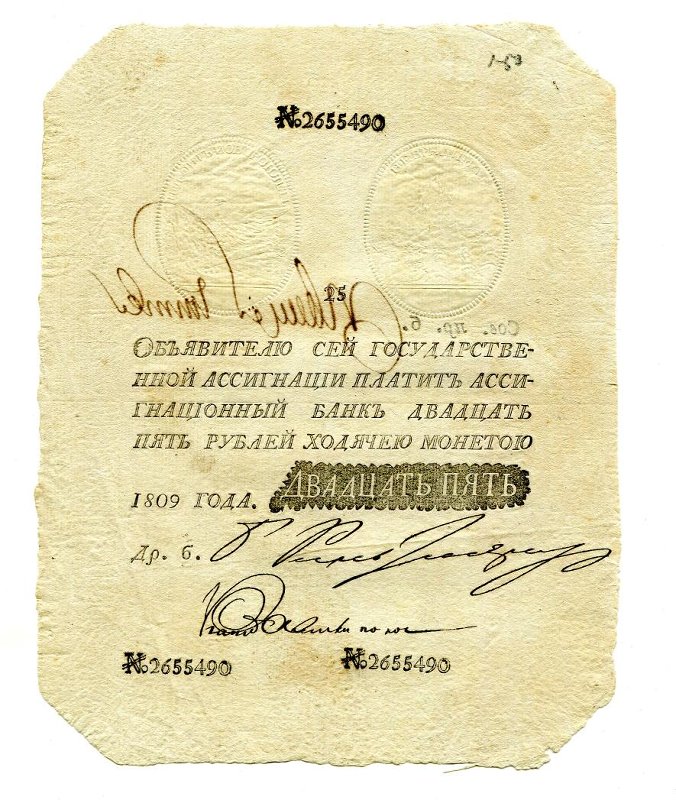 1-53
№2655490
25
Сов. пр. б.
ОБЪЯВИТЕЛЮ СЕЙ ГОСУДАРСТВЕ-
ННОЙ АССИГНАЦІИ ПЛАТИТЪ АССИ-
ГНАЦІОННЫЙ БАНКЪ ДВАДЦАТЬ
ПЯТЬ РУБЛЕЙ ХОДЯЧЕЮ МОНЕТОЮ
1809 ГОДА. ДВАДЦАТЬ ПЯТЬ
Др. б.
№2655490 №2655490